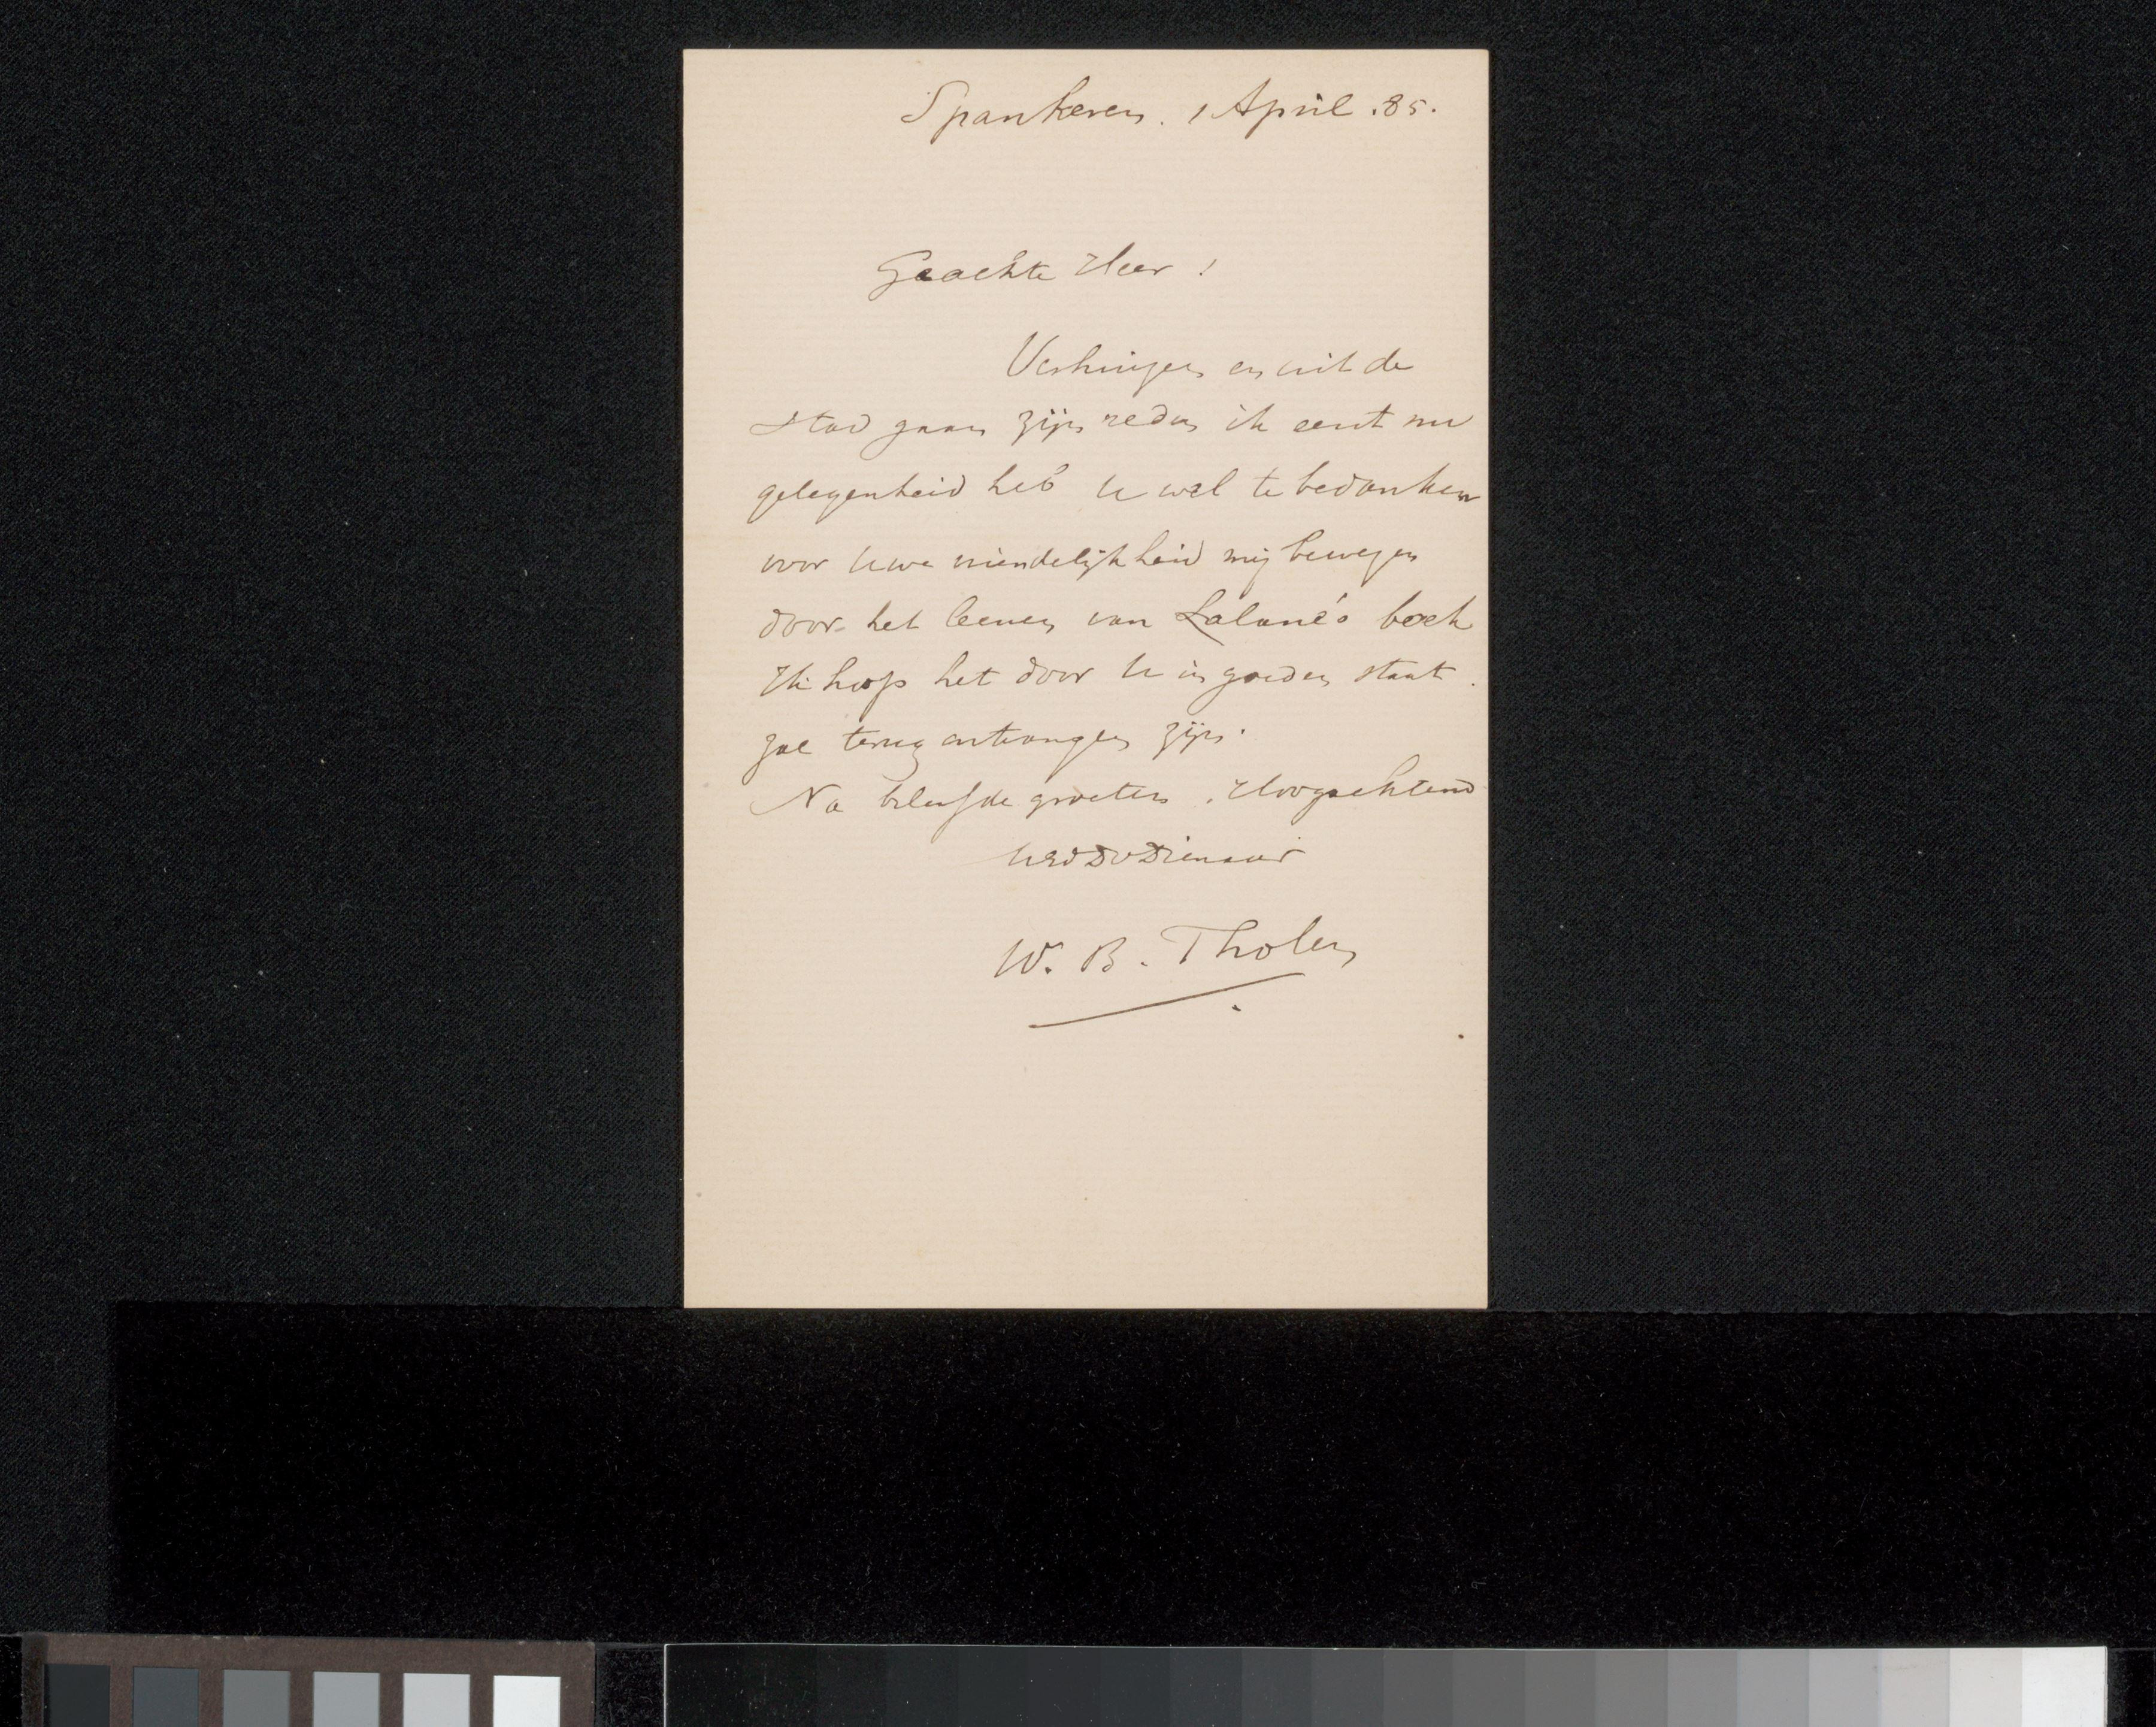 Spankeren. 1 April .85.
Geachte Heer!
Verhuizen en uit de
stad gaan zijn reden ik eerst nu
gelegenheid heb U wel te bedanken
voor Uwe vriendelijkheid mij bewezen
door het leenen van Lalané's boek
Ik hoop het door U in goeden staat.
zal terug ontvangen zijn.
Na beleefde groeten. Hoogachtend
UEd Dv Dienaar
W. B. Tholen